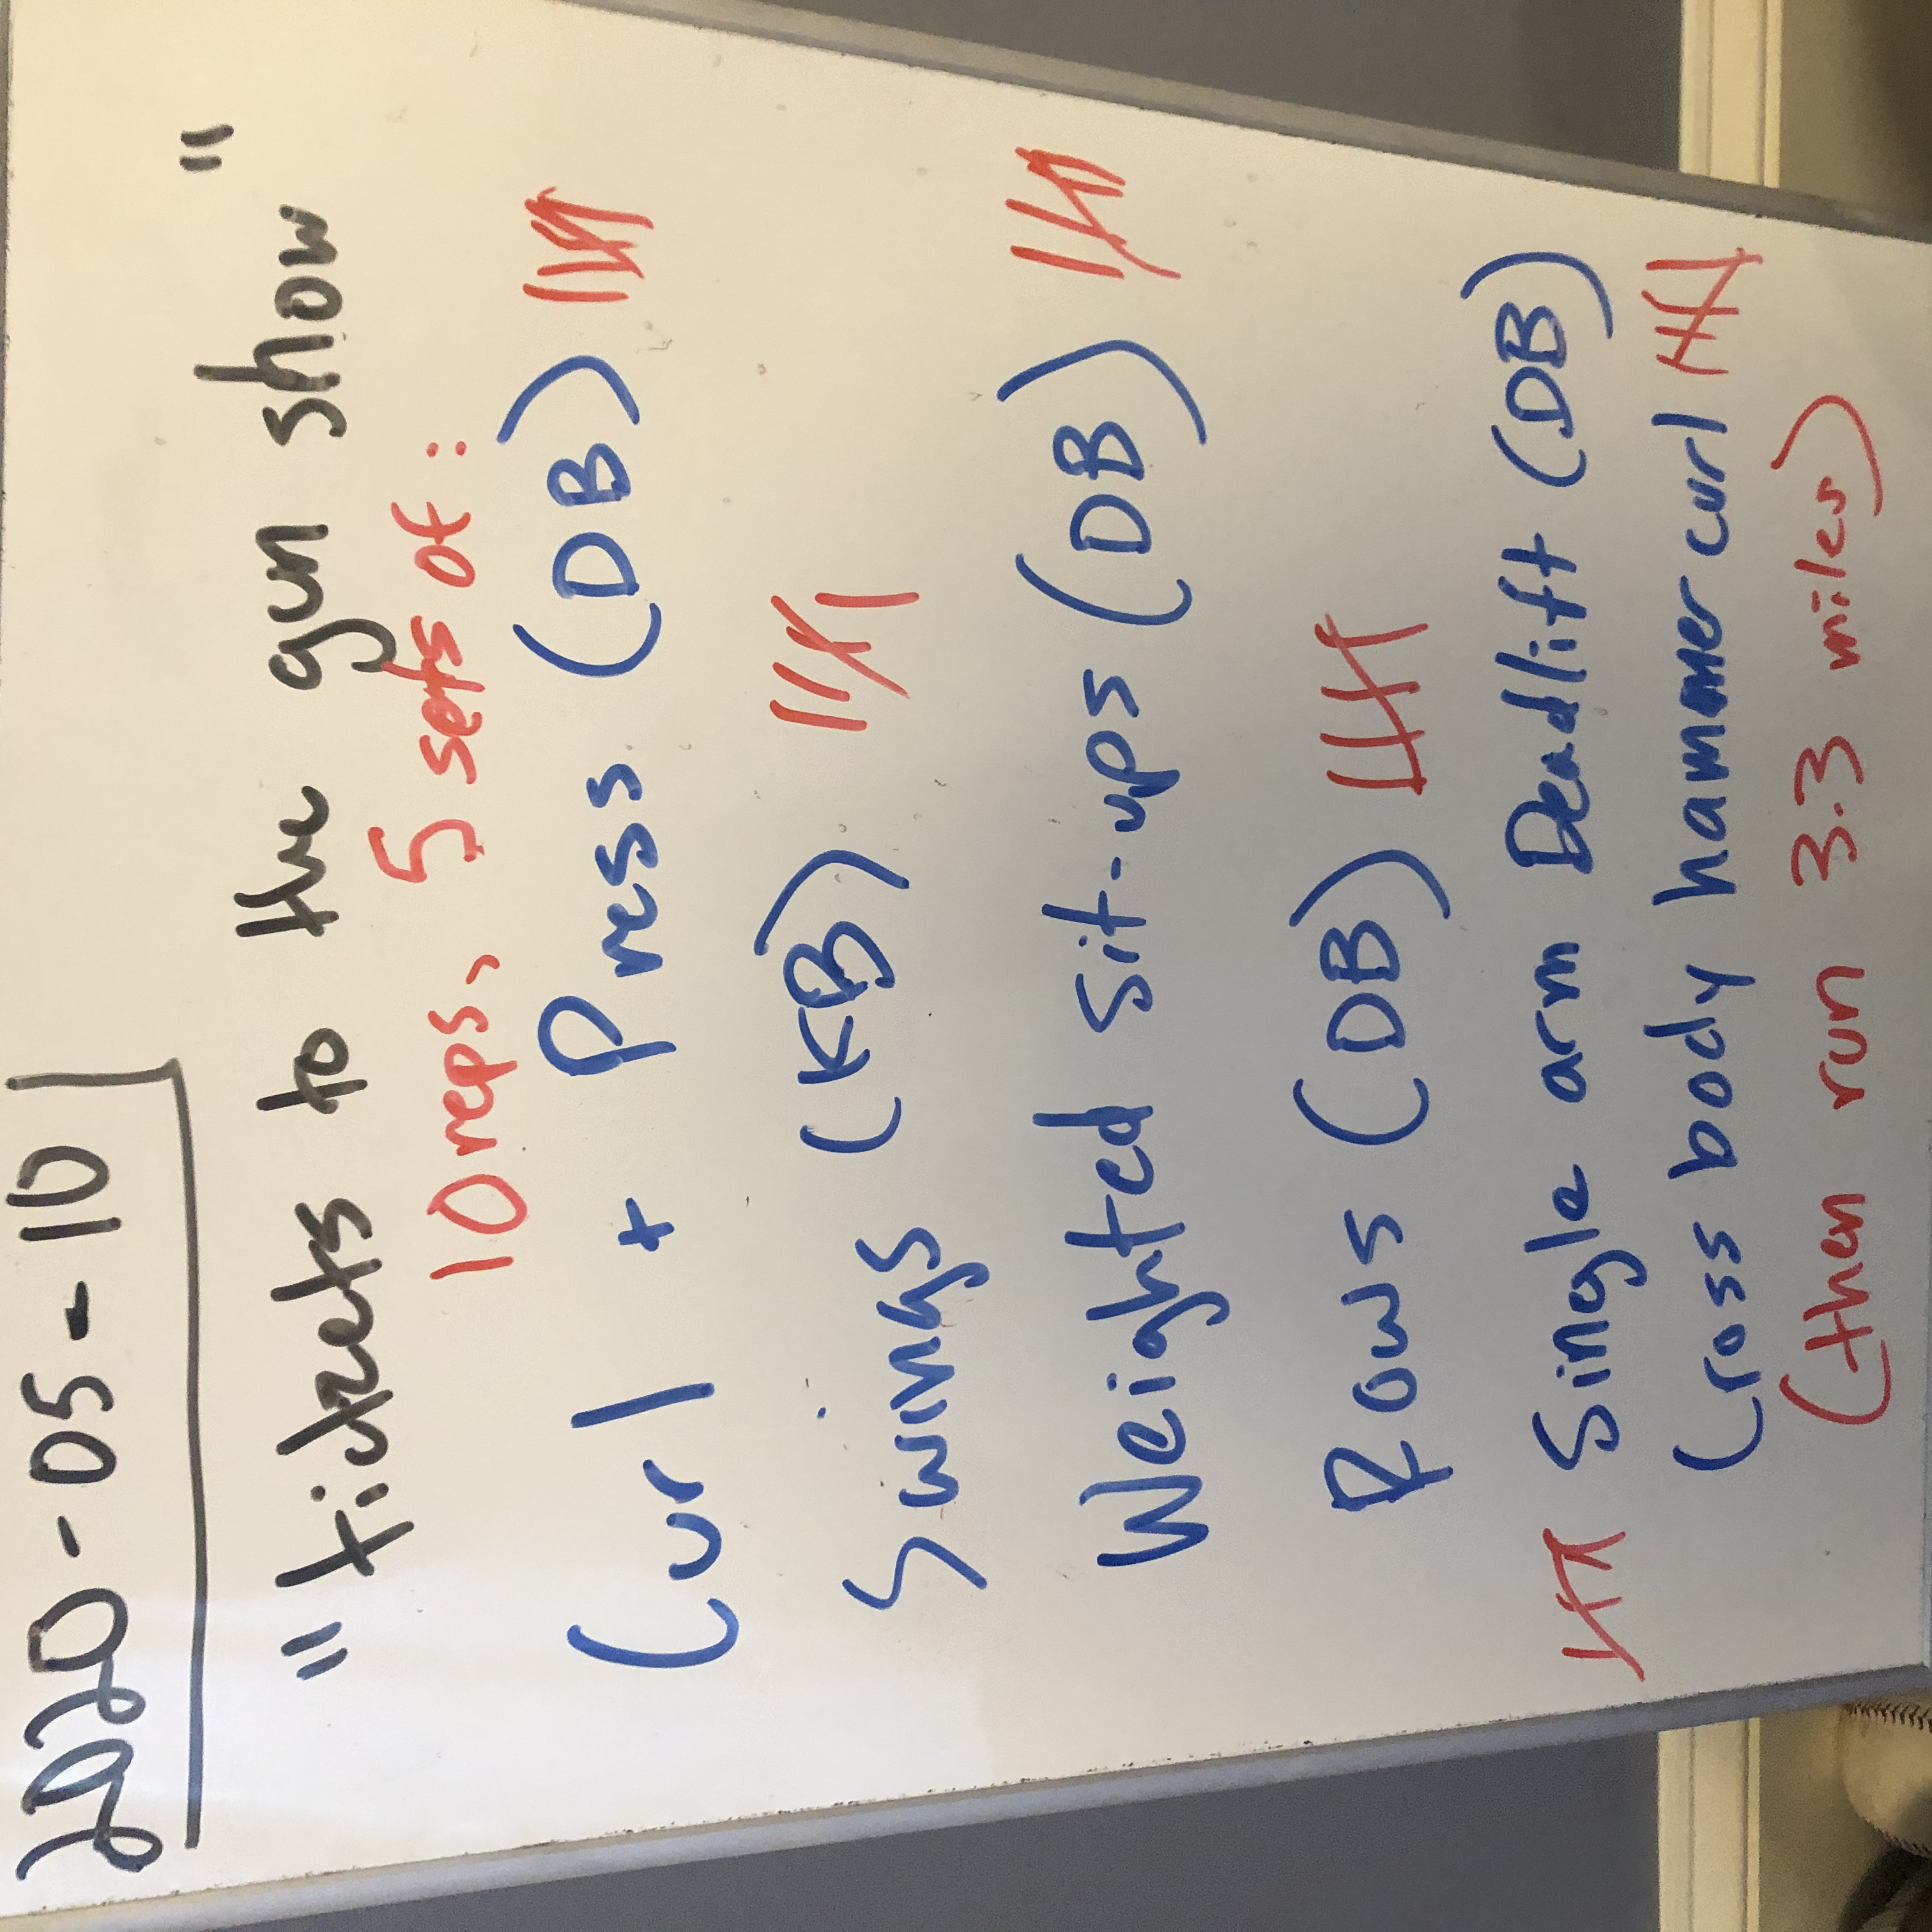 2020-05-10
"tickets to the gun show"
10 reps, 5 sets of:
Curl + Press (DB)
Swings (KB)
Weighted sit-ups (DB)
Rows (DB)
Single arm Deadlift (DB)
Cross body hammer curl
(then run 3.3 miles)